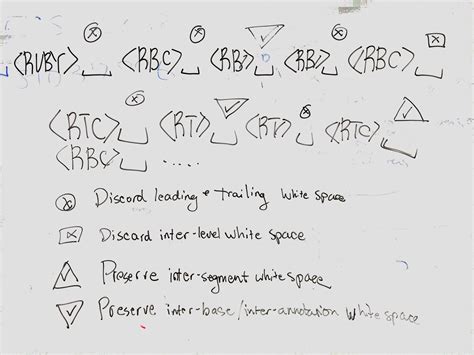 <RUBY>⎵ <RBC>⎵ <RB>⎵ <RB>⎵ <RBC>⎵
<RTC>⎵ <RT>⎵ <RT>⎵ <RTC>⎵
<RBC>⎵ .....
Discard leading + trailing white space
Discard inter-level white space
Preserve inter-segment white space
Preserve inter-base/inter-annotation white space